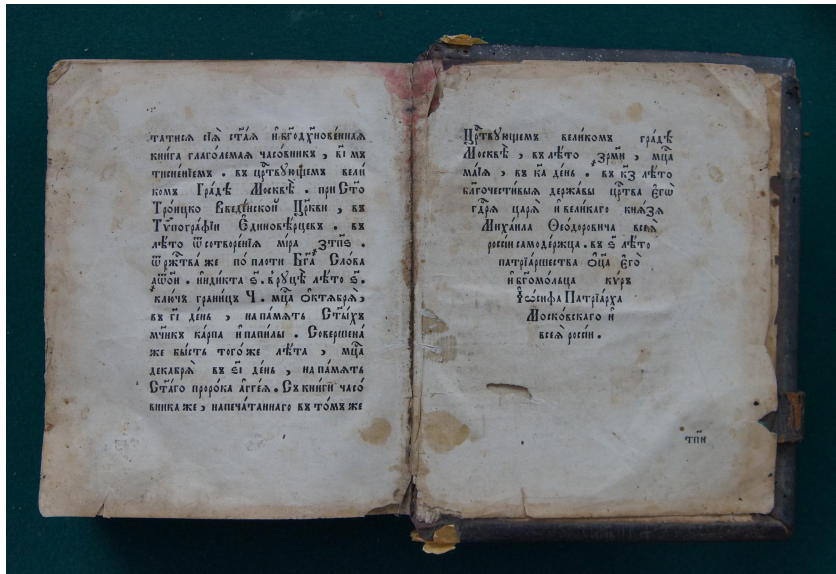 татисѧ сїѧ̀ ст҃а́ѧ и҆ бг҃одꙋ̑хнове́ннаѧ
кни́га глаго́лемаѧ часо́вникъ , в҃і мъ
тисне́нїемъ . въ црⷭ҇твꙋющемъ вели́
комъ Гра́дѣ Москвѣ̀ . при Ст҃о
Тро́ицко Введе́нской Цр҃кви , въ
Тѷпогра́фїи Е҆диновѣ́рцевъ . въ
лѣ́то ѿ сотворе́нїѧ мі́ра ҂зтп҃ѕ .
ѿ ржⷭ҇тва̀ же по́ плоти Бг҃а Сло́ва
҂аѡо҃и . и҆нди́кта ѕ҃ . врꙋцѣ̀ лѣ́то ѕ҃ .
клю́чъ грани́цъ Ч . мцⷭ҇а ѻ҆ктѧ́брѧ ,
въ г҃і де́нь , на па́мѧть Ст҃ы́хъ
мч҃нкъ ка́рпа и҆ папи́лы . Соверше́на
же бы́сть того́ же лѣ́та , мцⷭ҇а
декабрѧ̀ въ ѕ҃і де́нь , на па́мѧть
Ст҃а́го проро́ка а҆гге́ѧ . Съ кни́ги часо́
вника же , напеча́таннаго въ то́мъ же
Црⷭ҇твꙋющемъ вели́комъ гра́дѣ
Москвѣ̀ , въ лѣ́то ҂зрм҃и , мцⷭ҇а
ма́їѧ , въ к҃а де́нь . въ к҃з лѣ́то
бл҃гочести́выѧ держа́вы црⷭ҇тва є҆гѡ̀
гдⷭ҇рѧ царѧ̀ и҆ вели́каго кнѧ́зѧ
Михаи́ла Ѳео́доровича всеѧ̀
росси́и самоде́ржца . въ ѕ҃ лѣ́то
патрїа́ршества ѻ҆ц҃а є҆го̀
и҆ бг҃омо́льца кѵ́ръ
І҆ѡ́сифа Патрїа́рха
Моско́вскаго и҆
всеѧ̀ росси́и .
тп҃и